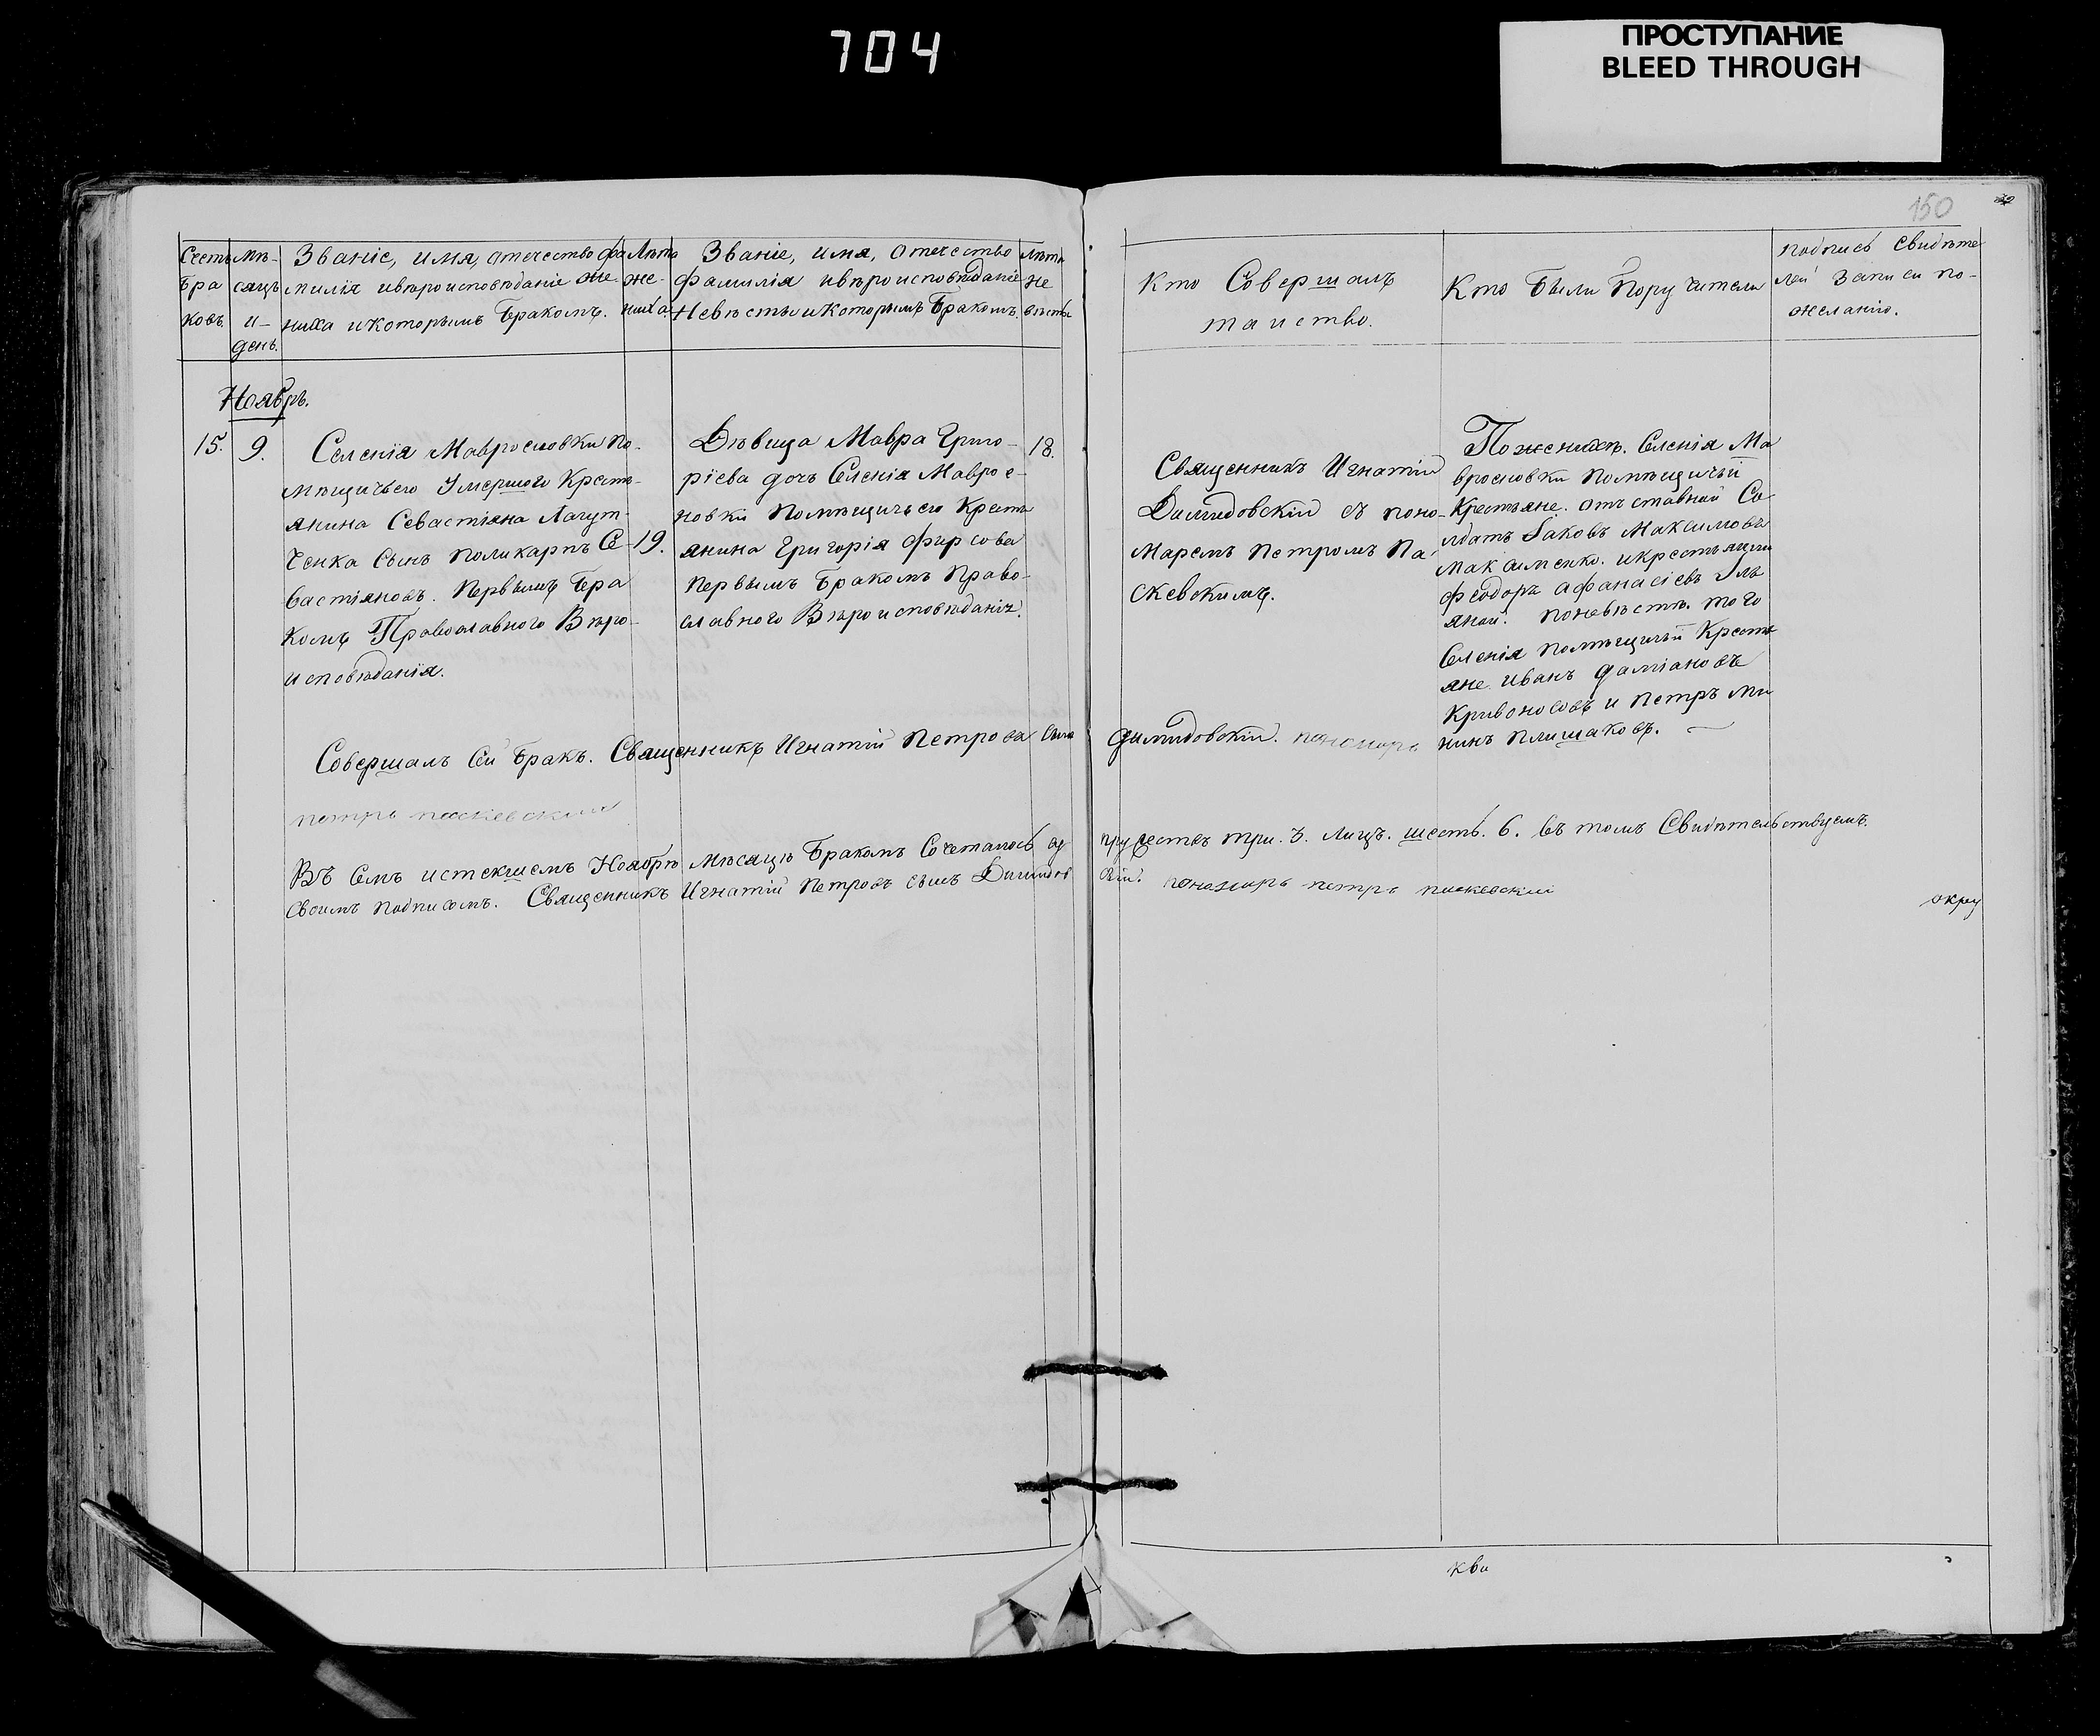 704
ПРОСТУПАНИЕ
BLEED THROUGH
150
Счетъ Бра ковъ.
Мѣ- сяцъ и- день.
Званіе, имя, отечество фа
милія ивѣроисповѣданіе же-
ниха икоторымъ Бракомъ.
Лѣта же- ниха.
Званіе, имя, отечество
фамилія ивѣроисповѣданіе
Невѣсты икоторымъ Бракомъ.
Лѣта не вѣсты
Кто Совершалъ
таиство.
Кто Были Поручители
Подпись Свидѣте
лей Записи по-
желанію.
Ноябрь.
15.
9.
Селенія Мавросновки По-
мѣщичьего Умершого Кресть-
янина Севастіяна Лагут-
ченка Сынъ Поликарпъ Се-
вастіяновъ. Первымъ Бра
комъ Православного Вѣро-
исповѣданія.
19.
Дѣвица Мавра Григо-
ріева дочь Селенія Мавросе-
новки Помѣщичьего Кресть
янина Григорія Фирсова
Первымъ Бракомъ Право-
славного Вѣроисповѣданія.
18.
Священникъ Игнатій
Димидовскій съ поно-
маремъ Петромъ Па-
скевскимъ.
Поженихѣ. Селенія Ма
вросновки Помѣщичьи
Крестьяне. отъставной Со
лдатъ Іаковъ Максимовъ
Максименко. икрестьянинъ
Феодоръ Афанасіевъ Уль
яной. Поневѣстѣ. того
Селенія Помѣщичьи Кресть
яне. Иванъ Даміановъ
Кривоносовъ и Петръ Ми
нинъ Плишаковъ.
Совершалъ Сей Бракъ. Священникъ Игнатій Петровъ Сынъ Димидовскій. пономарь
петръ паскевский
Въ Семъ истекшемъ Ноябрѣ Мѣсяцѣ Бракомъ Сочеталось три. 3. Лицъ. шесть. 6. Въ томъ Свидѣтельствуемъ.
Своимъ Подписомъ. Священникъ Игнатій Петровъ Сынъ Димидов скій. пономарь петръ паскевский
окру